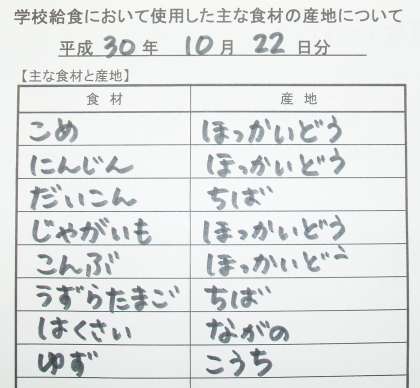 学校給食において使用した主な食材の産地について
平成 30 年 10 月 22 日分
【主な食材と産地】
食 材 産 地
こめ ほっかいどう
にんじん ほっかいどう
だいこん ちば
じゃがいも ほっかいどう
こんぶ ほっかいどう
うずらたまご ちば
はくさい ながの
ゆず こうち